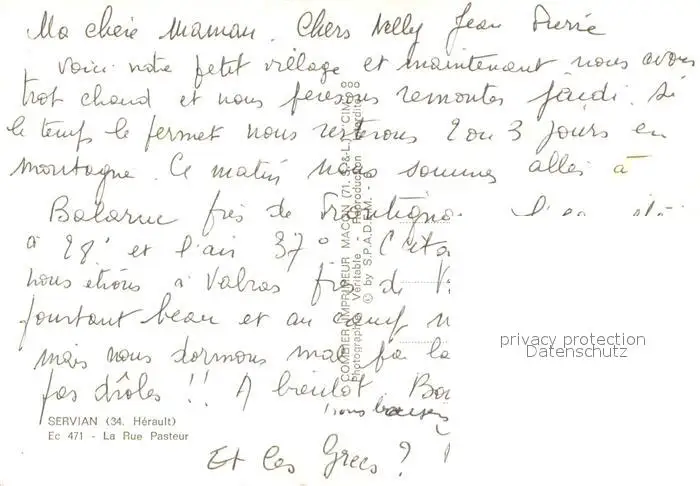 Ma chère Maman. Chers Nelly Jean Pierre
Voici notre petit village et maintenant nous avons
trop chaud et nous pensons remonter jeudi. Si
le temps le permet nous resterons 2 ou 3 jours en
montagne. Ce matin nous sommes allés à
Balaruc près de Frontigna
à 28° et l'air 37°
nous étions à Valras près de
pourtant beau et au camp
mais nous dormons mal
pas drôles !! A bientôt
bons baisers
Et les Grecs ?
COMBIER IMPRIMEUR MACON (71. S.&-L.) "CIM"
Photographie Véritable - Reproduction Interdite
© by S.P.A.D.E.M.
privacy protection
Datenschutz
SERVIAN (34. Hérault)
Ec 471 - La Rue Pasteur